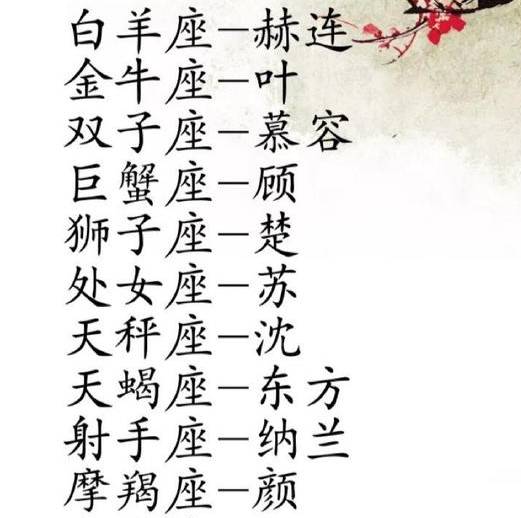 白羊座—赫连
金牛座—叶
双子座—慕容
巨蟹座—顾
狮子座—楚
处女座—苏
天秤座—沈
天蝎座—东方
射手座—纳兰
摩羯座—颜